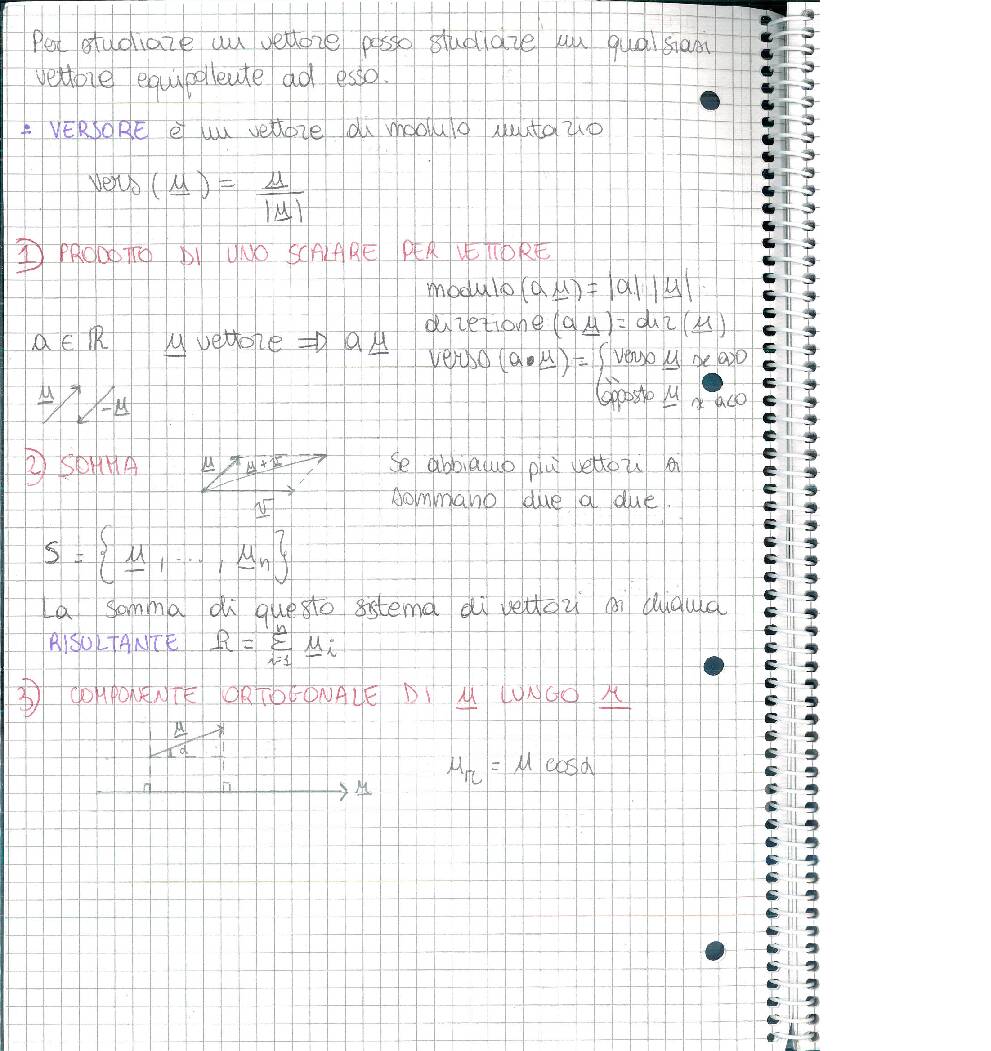 Per studiare un vettore posso studiare un qualsiasi
vettore equipollente ad esso.
÷ VERSORE è un vettore di modulo unitario
vers(u) = u / |u|
1) PRODOTTO DI UNO SCALARE PER VETTORE
modulo(a u) = |a| |u|
direzione(a u) = dir(u)
a ∈ ℝ u vettore ⇒ a u
verso(a•u) = { verso u se a>0
opposto u se a<0
u -u
2) SOMMA
u u+v
v
Se abbiamo più vettori si
sommano due a due.
S = { u, ..., u_n }
La somma di questo sistema di vettori si chiama
RISULTANTE R = Σ_{i=1}^{n} u_i
3) COMPONENTE ORTOGONALE DI u LUNGO r
u
α
r
u_r = u cosα